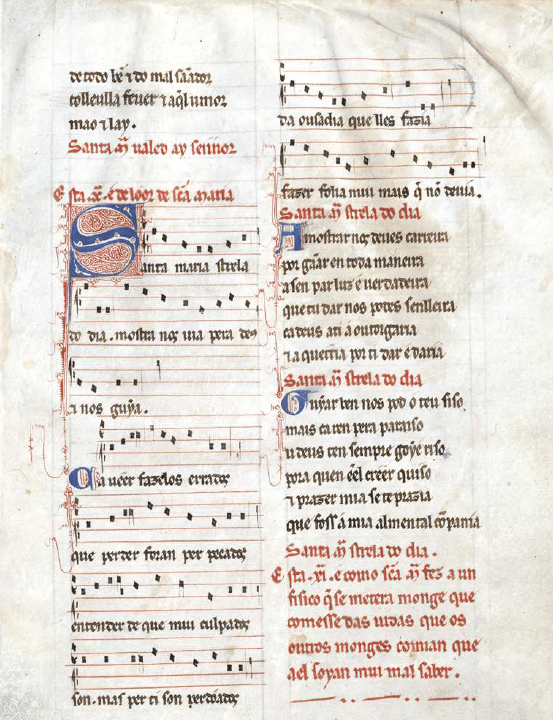 de todo bẽ ⁊ do mal sãador
tolleulla feuer ⁊ aq̃l umor
mao ⁊ lay.
Santa m̃ ualed ay sennor
Esta .x̃. é de loor de sc̃a maria
Santa maria strela
do dia. mostra nos uia pera deus
⁊ nos guya.
Ca ueer fazelos errados
que perder foran per pecados
entender de que mui culpados
son. mas per ti son perdõados
da ousadia que lles fazia
fazer folia mui mais q̃ nõ deuia.
Santa m̃ strela do dia
Amostrar nos deues carreira
por gãar en toda maneira
a sen par luz é uerdadeira
que tu dar nos podes senlleira
ca deus a ti a outorgaria
⁊ a querria por ti dar é daria
Santa m̃ strela do dia
Guyar ben nos pod o teu siso
mais ca ren pera parayso
u deus ten sempre goyé riso
pora quen eel creer quiso
⁊ prazer mia se te prazia
que foss á mia alma en tal cõpania
Santa m̃ strela do dia.
Esta .xi. é como sc̃a m̃ fez a un
fisico q̃ se metera monge que
comesse das uidas que os
outros monges comian que
a el soyan mui mal saber.